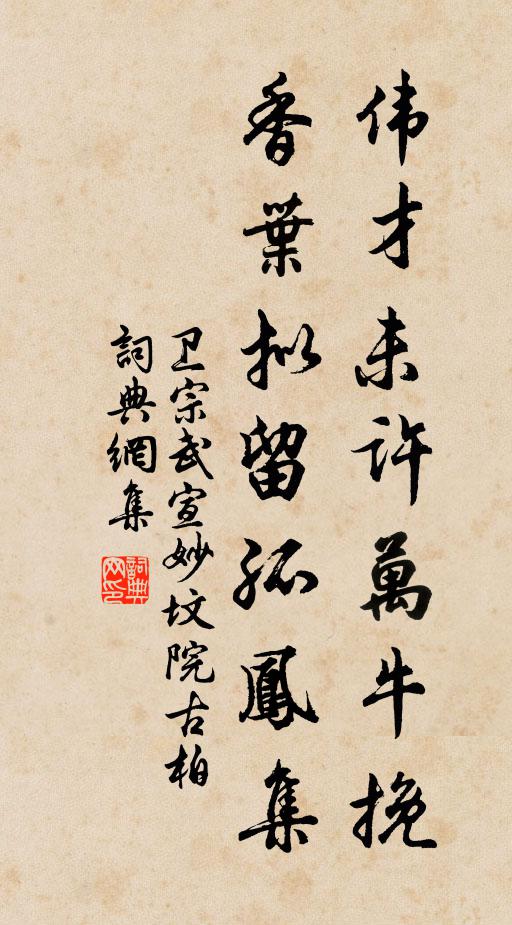 伟才未许萬牛挽
香葉拟留孤鳳集
卫宗武宣妙坟院古柏
詞典網集
詞典网印